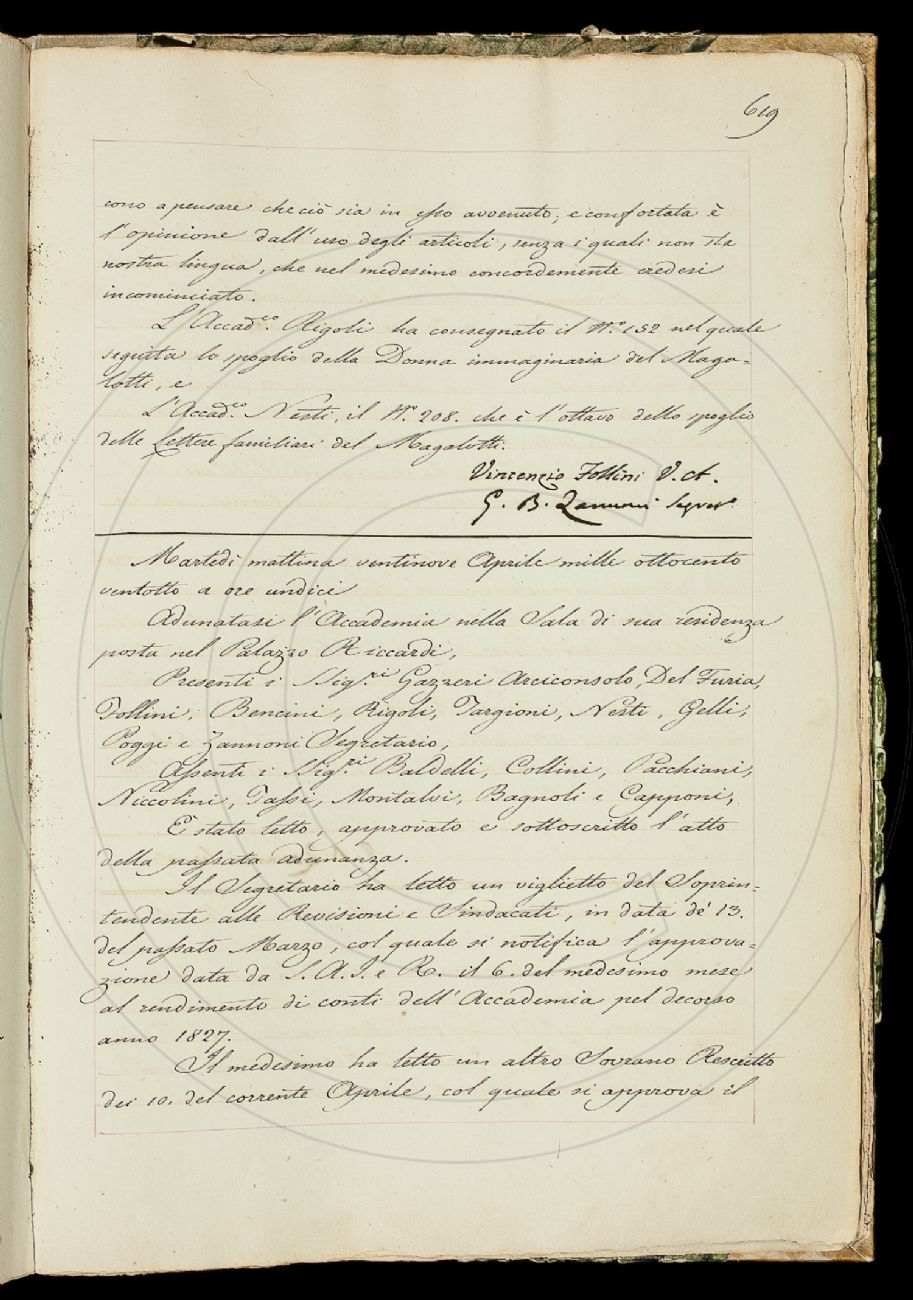 619
cono a pensare che ciò sia in esso avvenuto; e confortata è
l'opinione dall'uso degli articoli, senza i quali non sta
nostra lingua, che nel medesimo concordemente credesi
incominciato.
L'Accad.co Rigoli ha consegnato il N.o 152 nel quale
seguita lo spoglio della Donna immaginaria del Maga=
lotti, e
L'Accad.co Nesti, il N.o 208. che è l'ottavo dello spoglio
delle Lettere familiari del Magalotti.
Vincenzio Follini V. A.
G. B. Zannoni Segret.o
Martedì mattina ventinove Aprile mille ottocento
ventotto a ore undici
Adunatasi l'Accademia nella Sala di sua residenza
posta nel Palazzo Riccardi,
Presenti i Sig.ri Gazzeri Arciconsolo, Del Furia,
Follini, Bencini, Rigoli, Targioni, Nesti, Gelli,
Poggi e Zannoni Segretario,
Assenti i Sig.ri Baldelli, Collini, Pacchiani,
Niccolini, Tassi, Montalvi, Bagnoli e Capponi,
È stato letto, approvato e sottoscritto l'atto
della passata adunanza.
Il Segretario ha letto un viglietto del Soprin=
tendente alle Revisioni e Sindacati, in data de' 13.
del passato Marzo, col quale si notifica l'approva=
zione data da S. A. I. e R. il 6. del medesimo mese
al rendimento di conti dell'Accademia pel decorso
anno 1827.
Il medesimo ha letto un altro Sovrano Rescritto
dei 10. del corrente Aprile, col quale si approva il